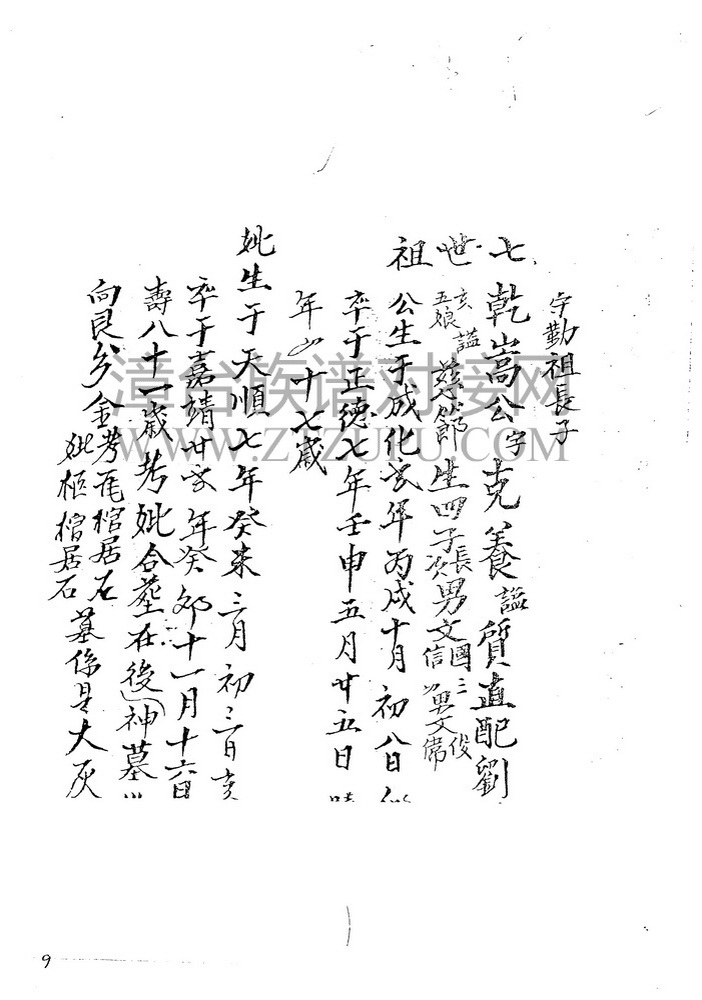 守勤祖長子
七世祖
乾嵩公字克養謚質直配劉
五娘謚慈節生四子長男文國三俊
次文信四男文席
公生于成化年丙戌十月初八日
卒于正德七年壬申五月廿五日時
年四十七歲
妣生于天順七年癸未三月初三日亥
卒于嘉靖廿年癸卯十一月十六日
壽八十一歲考妣合塟在後神墓
向艮金考棺居左
妣柩棺居右
墓係是大灰
漳台族谱对接网
WWW.ZTZUPU.COM
9